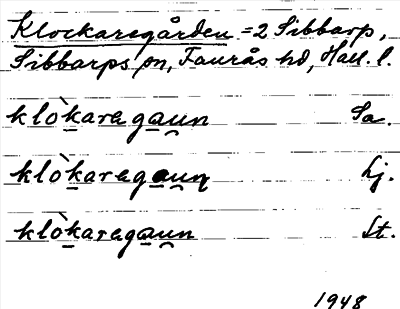 Klockaregården = 2 Sibbarp,
Sibbarps sn, Faurås hd, Hall. l.
klòkaregau̯n Sa.
klòkaregau̯n Lj.
klòkaregau̯n St.
1948